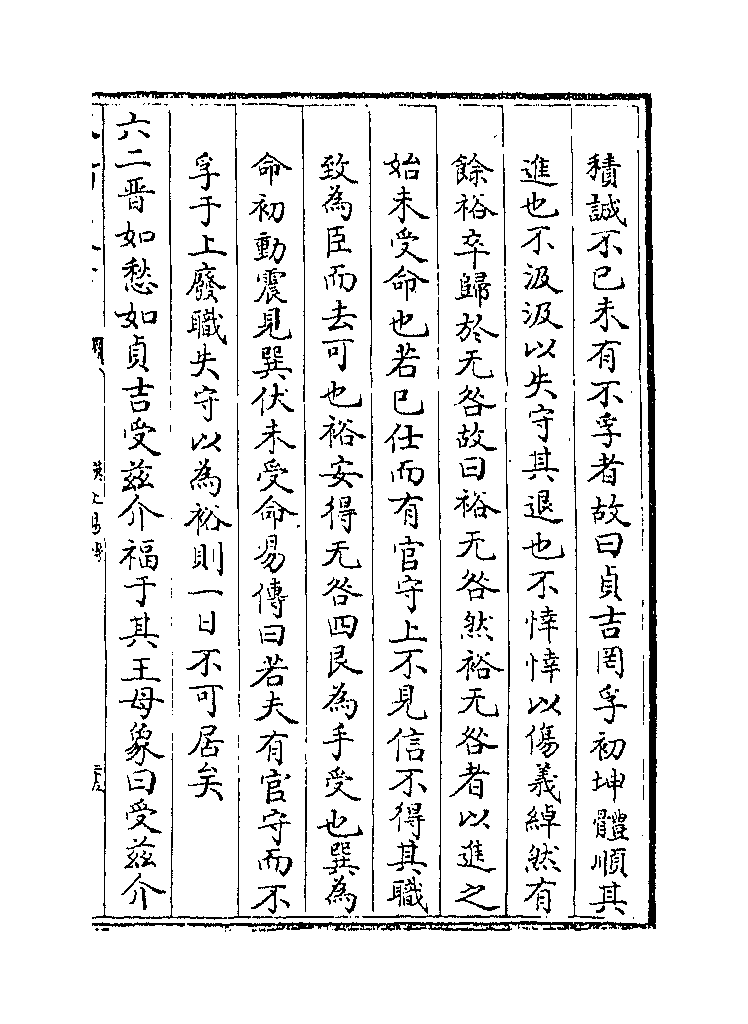 積誠不已未有不孚者故曰貞吉罔孚初坤體順其
進也不汲汲以失守其退也不悻悻以傷義綽然有
餘裕卒歸於无咎故曰裕无咎然裕无咎者以進之
始未受命也若已仕而有官守上不見信不得其職
致為臣而去可也裕安得无咎四艮為手受也巽為
命初動震見巽伏未受命易傳曰若夫有官守而不
孚于上廢職失守以為裕則一日不可居矣
六二晋如愁如貞吉受兹介福于其王母象曰受兹介
漢上易傳